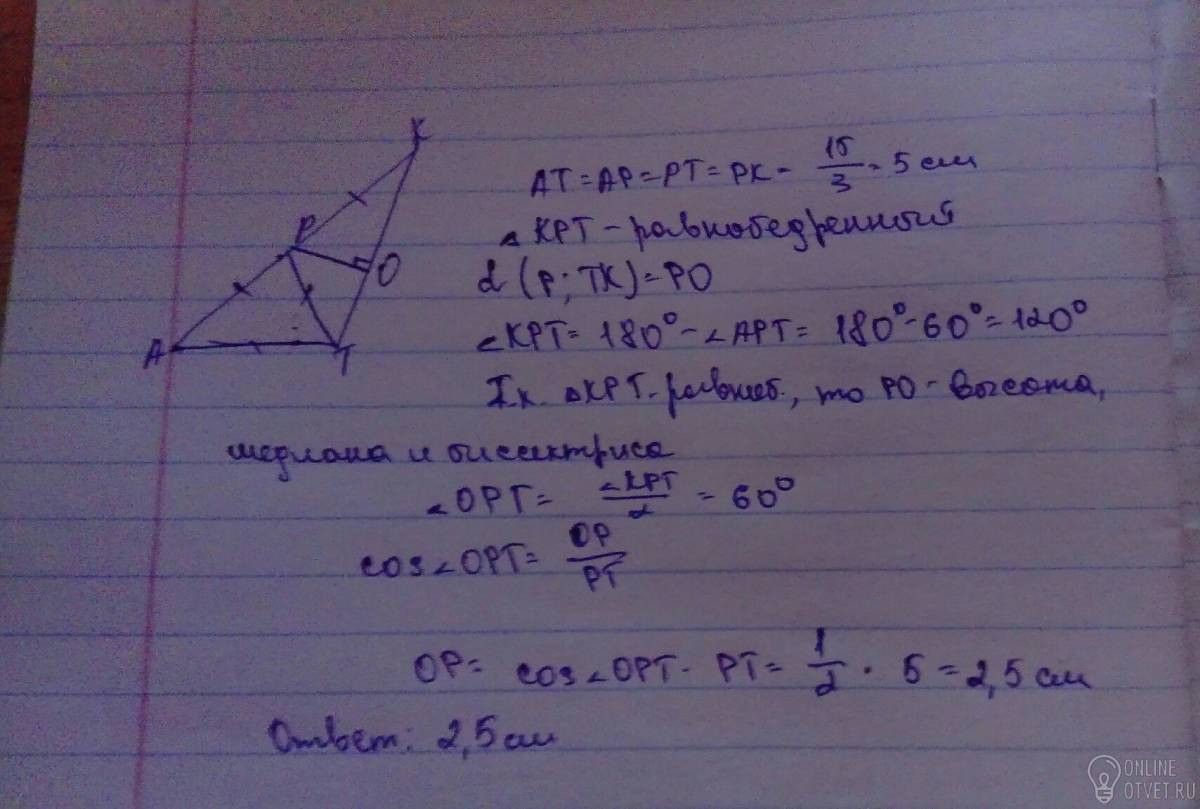 K
P
O
A
T
AT = AP = PT = PK = 15/3 = 5 см
△ KPT - равнобедренный
d (P; TK) = PO
∠KPT = 180° - ∠APT = 180° - 60° = 120°
Т.к. △KPT - равноб., то PO - высота,
медиана и биссектриса
∠OPT = ∠KPT/2 = 60°
cos∠OPT = OP/PT
OP = cos∠OPT · PT = 1/2 · 5 = 2,5 см
Ответ: 2,5 см
ONLINE
OTVET.RU